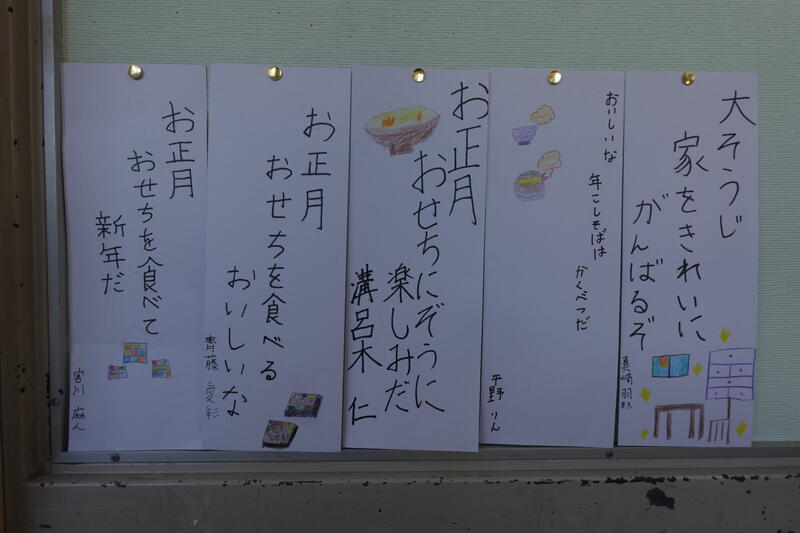 大そうじ
家をきれいに
がんばるぞ
おいしいな
年こしそばは
かくべつだ
平野 りん
お正月
おせちにぞうに
楽しみだ
溝呂木 仁
お正月
おせちを食べる
おいしいな
齊藤 愛彩
お正月
おせちを食べて
新年だ
宮川 麻人